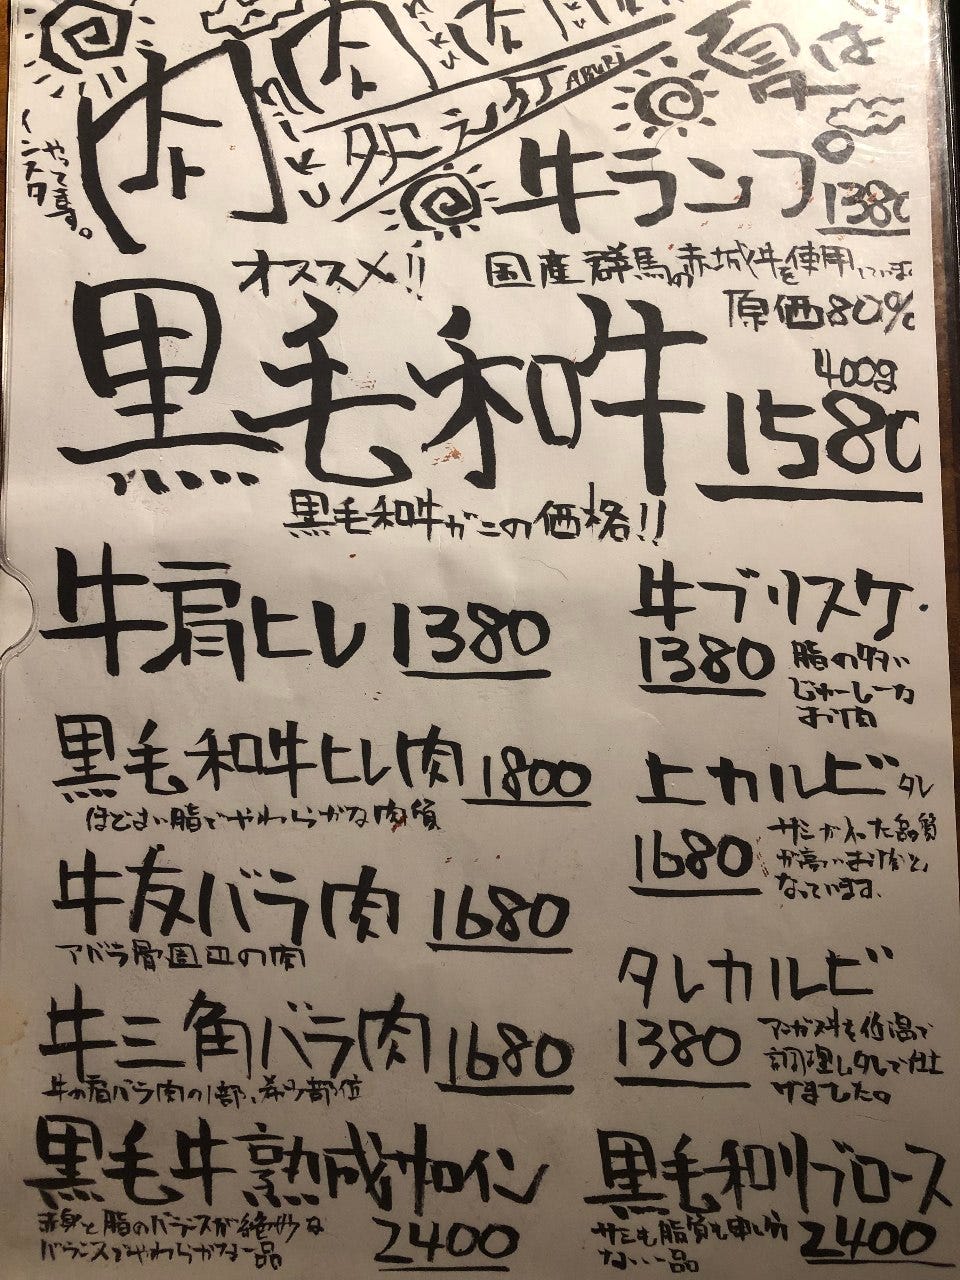 肉 肉 肉
MiKU
ダイニング ABURI
はじ
やってます。
インスタ
牛ランプ
1380
オススメ!!
国産群馬の赤城牛を使用しています
原価80%
黒毛和牛
400g
1580
黒毛和牛がこの価格!!
牛肩ヒレ 1380
牛ブリスケ
1380
脂の多い
じゅーしーな
お肉
黒毛和牛ヒレ肉 1800
ほどよい脂でやわらかな肉質
上カルビ タレ
1680
サシが入った品質
が高いお肉と
なっています。
牛友バラ肉 1680
アバラ骨周辺の肉
タレカルビ
1380
アンガス牛を低温で
調理しタレで仕上
げました。
牛三角バラ肉 1680
牛の肩バラ肉の1部、希少部位
黒毛牛熟成サロイン
2400
赤身と脂のバランスが絶妙な
バランスでやわらかな一品
黒毛和リブロース
2400
サシも脂質も申し分
ない一品